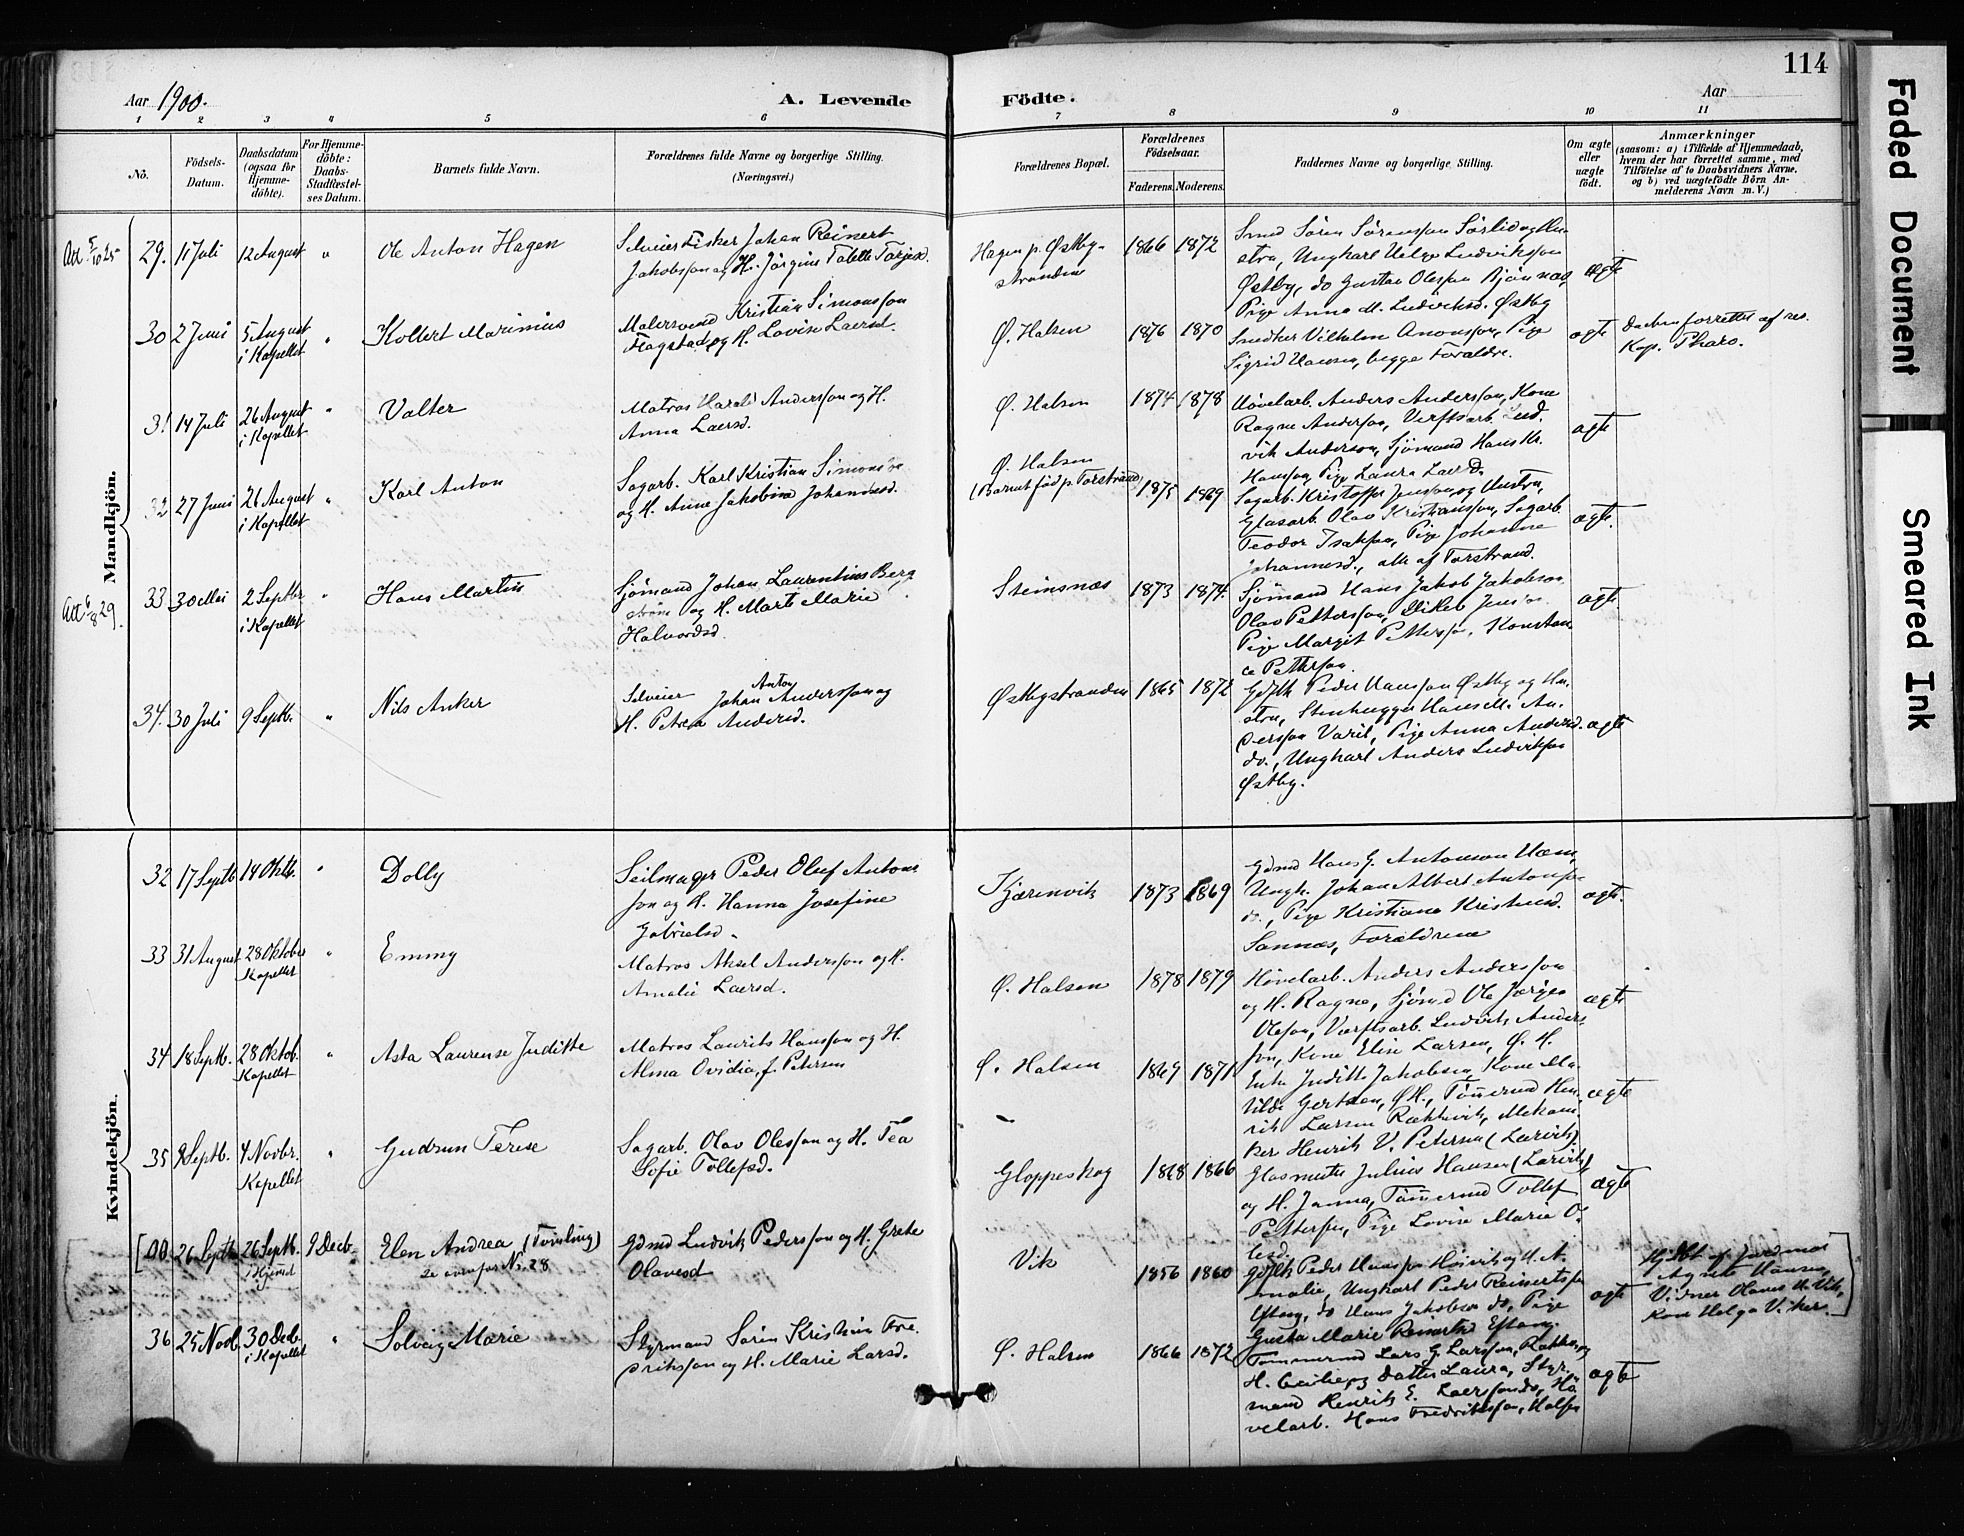 114
Aar 1900.
A. Levende
Födte.
Aar
1 2 3 4 5 6 7 8 9 10 11
No.
Födsels-Datum.
Daabsdatum (ogsaa for Hjemme-döbte).
For Hjemme-döbte: Daabs-Stadfæstel-ses Datum.
Barnets fulde Navn.
Forældrenes fulde Navne og borgerlige Stilling.
(Næringsvei.)
Forældrenes Bopæl.
Forældrenes Födselsaar.
Faderens. Moderens.
Faddernes Navne og borgerlige Stilling.
Om ægte eller uægte födt.
Anmærkninger
(saasom: a) i Tilfælde af Hjemmedaab,
hvem der har forrettet samme, med
Tilföielse af to Daabsvidners Navne,
og b) ved uægtefödte Börn An-
melderens Navn m. V.)
Mandkjön.
Att 5/10 25
29. 11 Juli 12 August " Ole Anton Hagen
Selveier Fisker Johan Reinert
Jakobsson og H. Jörgine Tolette Torjesd.
Hagen p. Østby-
stranden
1866 1872
Smed Sören Sörensson Sörlid og Hu-
stru, Ungkarl Helge Ludviksson
Østby, do Gustav Olesson Bjönnæs,
Pige Anna M. Ludviksd. Østby
ægte
30 2 Juni 5 August i Kapellet " Kolbert Marinius
Malersvend Kristian Simonsson
Flagstad og H. Lovise Laersd.
Ø. Halsen
1876 1870
Snedker Vilhelm Aronsson, Pige
Sigrid Hansen, begge Forældre.
ægte
Daaben forrettet af res.
Kap.
31 14 Juli 26 August i Kapellet " Valter
Matros Harald Andersson og H.
Anna Laersd.
Ø. Halsen
1874 1878
Hövelarb. Anders Andersson, Kone
Ragne Andersson, Verftsarb. Lud-
vik Andersson, Sjömand Hans Kr.
Hansson, Pige Laura Laersd.
ægte
32 27 Juni 26 August i Kapellet " Karl Anton
Sagarb. Karl Kristian Simonsson
og H. Anne Jakobine Johannesd.
Ø. Halsen
(Barnet född p. Torstrand)
1875 1869
Sagarb. Kristoffer Jensson og Hustru,
Glasarb. Olav Kristiansson, Sagarb.
Teodor Isaksson, Pige Johanne
Johannesd., alle af Torstrand.
ægte.
Att 6/8 29.
33 30 Mai 2 Septbr. i Kapellet " Hans Martin
Sjömand Johan Laurentius Berg-
ström og H. Marte Marie
Halvordsd.
Steinsnæs
1873 1874
Sjömand Hans Jakob Jakobsson,
Olav Pettersson,
Pige Margit Petterson, Konstan-
ce Petterson.
ægte
34. 30 Juli 9 Septb. " Nils Anker
Selveier Johan Anton Andersson og
H. Petrea Andersd.
Østbystranden
1865 1872
Gdfth. Peder Hansson Østby og Hu-
stru, Stenhugger Hans M. An-
dersson Varil, Pige Anna Andersd.
do., Ungkarl Anders Ludviksson
Østby.
ægte
Kvindekjön.
32 17 Septb. 14 Oktb. " Dolly
Seilmager Peder Oluf Antons-
son og H. Hanna Josefine
Gabrielsd.
Kjærinvik
1873 1869
Gdmd Hans G. Antonson Hem,
Ungk. Johan Albert Antonsson
do., Pige Kristiane Kristensd.
Sannæs, Forældrene
ægte.
33 31 August 28 Oktober Kapellet " Emmy
Matros Aksel Andersson og H.
Amalie Laersd.
Ø. Halsen
1878 1879
Hövelarb. Anders Andersson
og H. Ragne, Sjömd Ole Jörgen
Oleson, Værftsarb. Ludvik Anders-
son, Kone Elise Larsen, Ø. H.
ægte
34 18 Septb. 28 Oktob. Kapellet " Asta Laurense Juditte
Matros Laurits Hansson og H.
Alma Ovidia, f. Petersen
Ø. Halsen
1869 1871
Enke Juditte Jakobsen, Kone Ma-
tilde Gertsen, ØH., Tömmermd Hen-
rik Larsen Rækkevik, Mekani-
ker Henrik V. Petersen (Larvik).
ægte
35 9 Septb. 4 Novbr. Kapellet " Gudrun Terese
Sagarb. Olav Olesson og H. Tea
Sofie Tollefsd.
Gloppeskog
1868 1866
Glasmester Julius Hansen (Larvik)
og H. Janna, Tömmermd Tollef
Petterson, Pige Lovise Marie O-
lesd.
ægte
[00 26 Septb 26 Septb. i Hjemmet 9 Decb. Elen Andrea (Tvilling)
Se ovenfor No. 28
Gdmd Ludvik Pedersson og H. Grete
Olavesd
Vik
1856 1860
Gdfth Peder Hansson Höivik og H. A-
malie, Ungkarl Peder Reinertsson
Eftang, do Hans Jakobsen do, Pige
Gusta Marie Reinertsd Eftang.
ægte
Hjdbt af Jordmor
Agnete Hansen,
Vidner Hans H. Vik,
Kone Helga Viker.]
36 25 Novb. 30 Decb. i Kapellet " Solveig Marie
Styrmand Sörin Kristian Fre-
driksson og H. Marie Larsd.
Ø. Halsen
1866 1872
Tömmermd Lars G. Larsson, Rakke, og
H. Cecilie og Datter Laura, Styr-
mand Henrik E. Laersson do, Hö-
velarb. Hans Fredriksson, Halsen
ægte
Faded Document
Smeared Ink